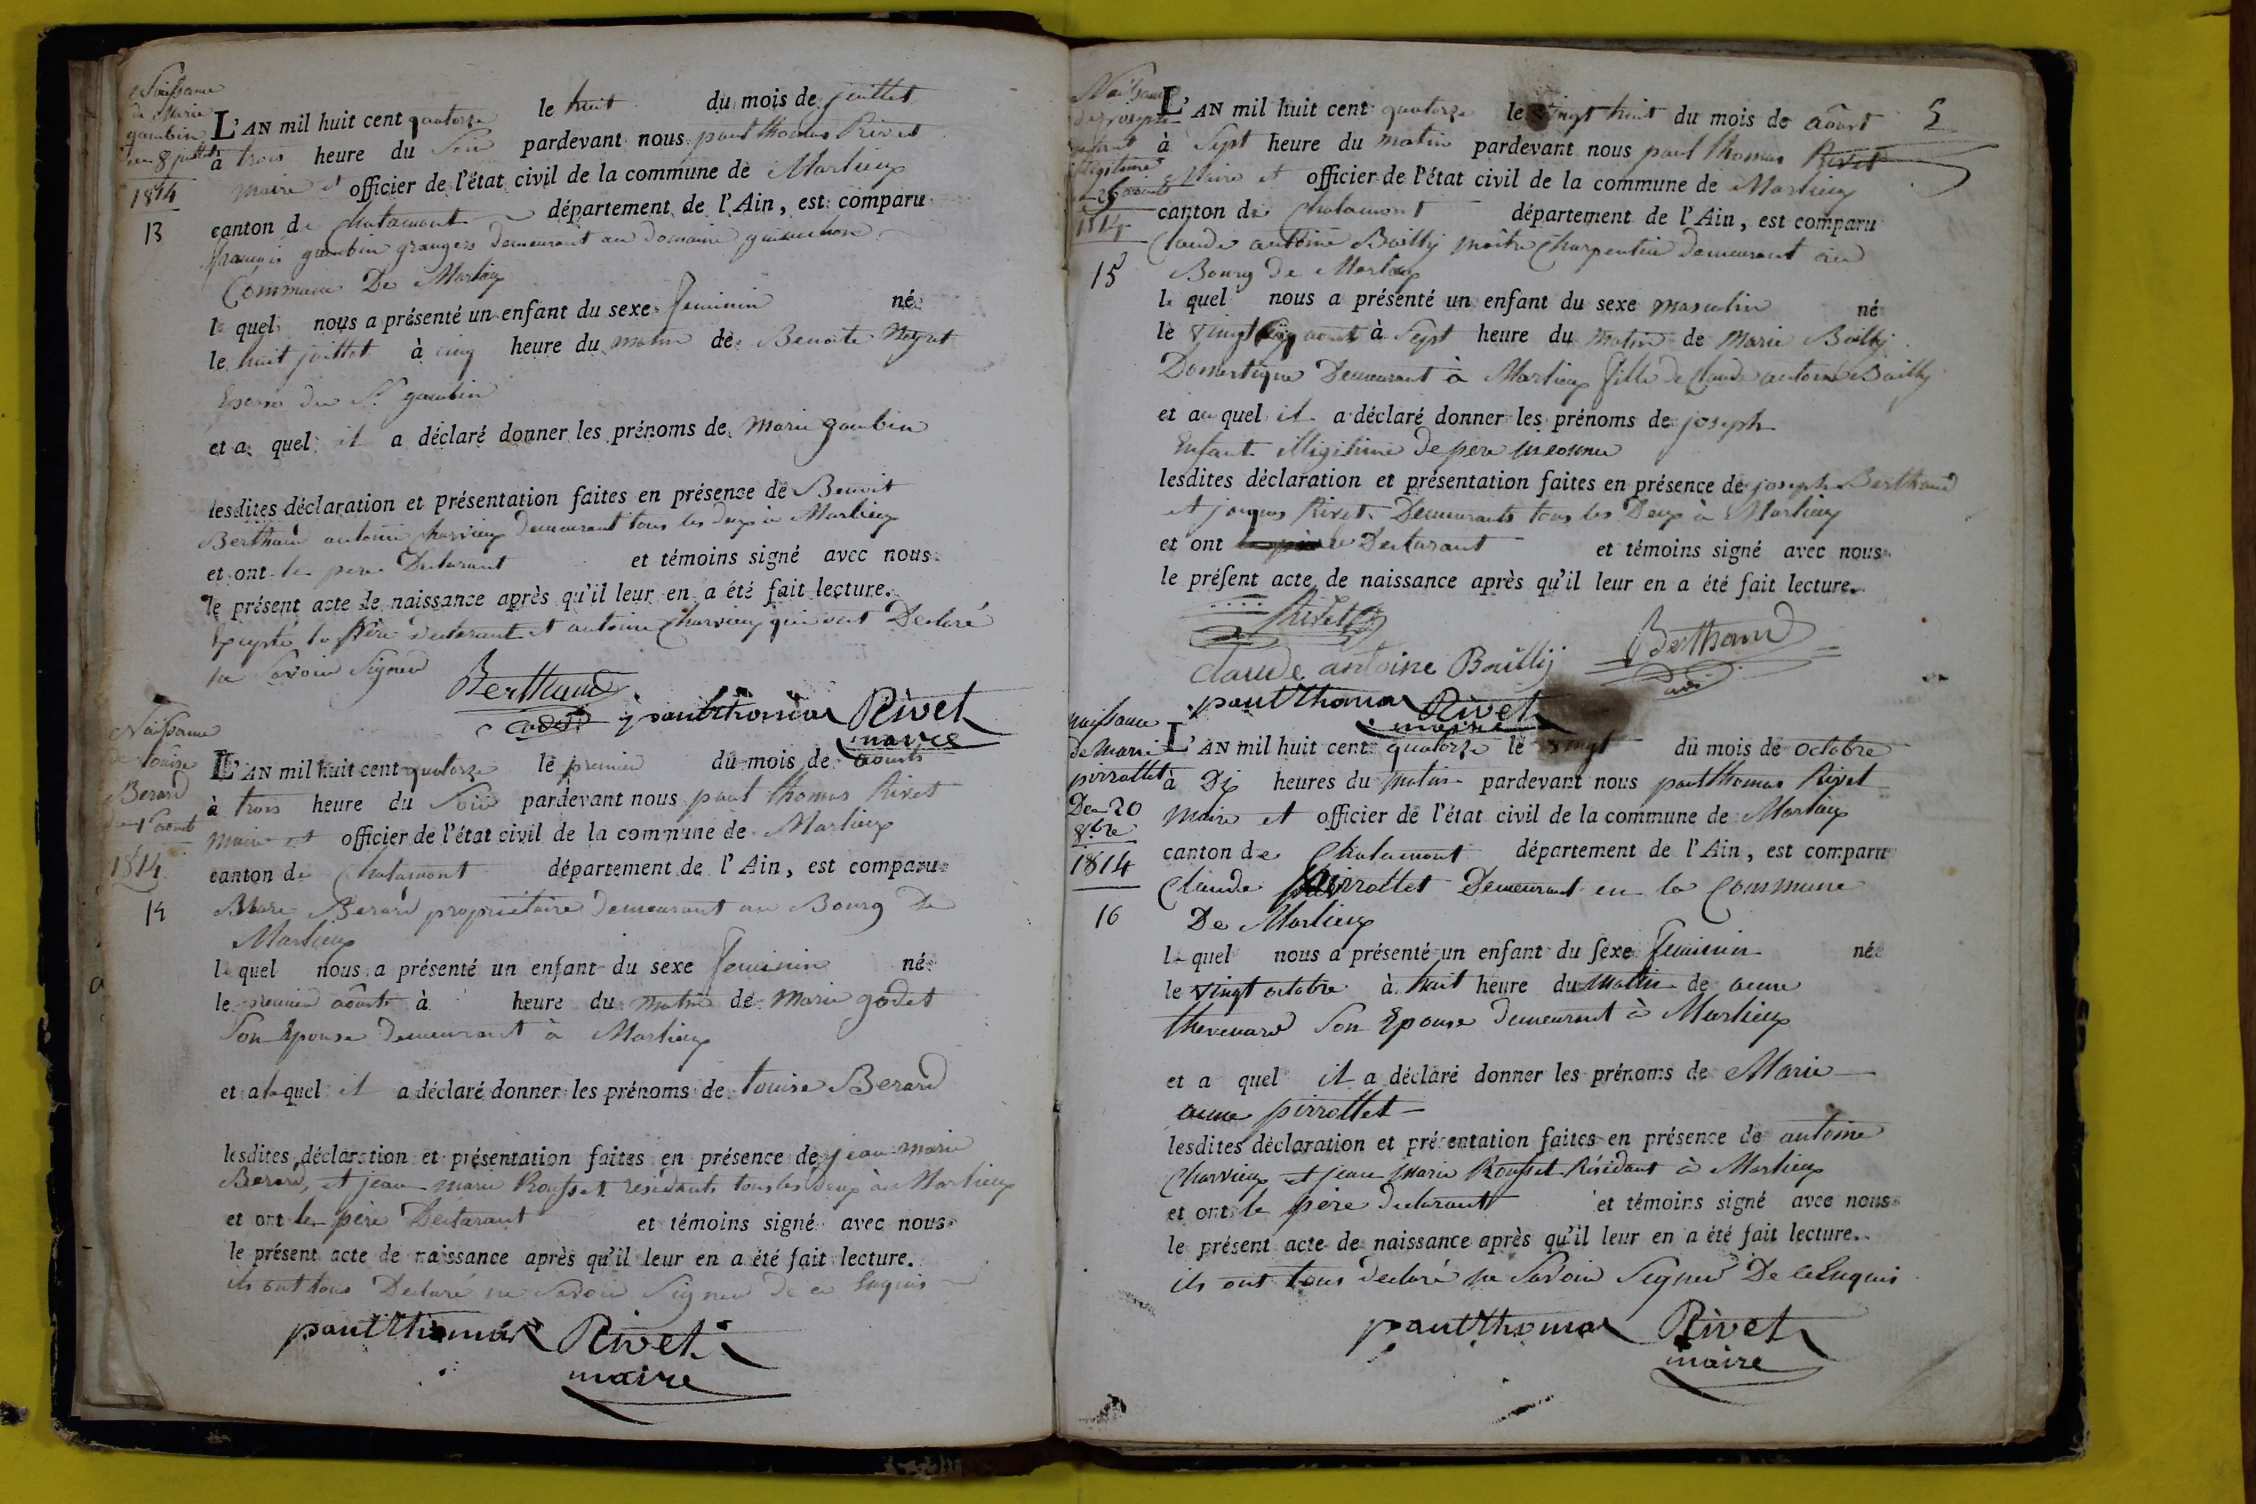 Naissance
de Marie
gambin
du 8 juillet
1814
13
L'AN mil huit cent quatorze le huit du mois de juillet
à trois heure du Soir pardevant nous paul thomas Rivet
maire et officier de l'état civil de la commune de Marlieux
canton de Chalamont département de l'Ain, est comparu
françois gambin granger demeurant au domaine
Commune De Marlieux
le quel nous a présenté un enfant du sexe feminin née
le huit juillet à cinq heure du matin de Benoite
Epouse du St gambin
et a quel il a déclaré donner les prénoms de marie gambin
lesdites déclaration et présentation faites en présence de Benoit
Berthaud antoine charvieux demeurant tous les deux à Marlieux
et ont le pere Declarant et témoins signé avec nous
le présent acte de naissance après qu'il leur en a été fait lecture.
Excepté le père declarant et antoine Charvieux qui ont Declaré
ne Savoir Signer
Berthaud
paul thomas Rivet
maire
Naissance
de louise
Berard
du 1er aout
1814
14
L'AN mil huit cent quatorze le premier du mois de aoust
à trois heure du Soir pardevant nous paul thomas Rivet
maire et officier de l'état civil de la commune de Marlieux
canton de Chalamont département de l'Ain, est comparu
Marc Berard proprietaire demeurant au Bourg De
Marlieux
le quel nous a présenté un enfant du sexe feminin née
le premier aoust à heure du matin de marie godet
Son Epouse demeurant à Marlieux
et a la quel il a déclaré donner les prénoms de louise Berard
lesdites déclaration et présentation faites en présence de jean marie
Berard, et jean marie Rousset résidants tous les deux à Marlieux
et ont le père Declarant et témoins signé avec nous
le présent acte de naissance après qu'il leur en a été fait lecture.
ils ont tous Declaré ne Savoir Signer de ce Enquis
paul thomas Rivet
maire
5
Naissance
de joseph
enfant
illigitime
26 aout
1814
15
L'AN mil huit cent quatorze le vingt huit du mois de aôust
à Sept heure du matin pardevant nous paul thomas Rivet
Maire et officier de l'état civil de la commune de Marlieux
canton de Chalamont département de l'Ain, est comparu
Claude antoine Bailly maitre Charpentier demeurant au
Bourg de Marlieux
le quel nous a présenté un enfant du sexe masculin né
le vingt six aoust à Sept heure du matin de Marie Bailly
Domestique Demeurant à Marlieux fille de Claude antoine Bailly
et au quel il a déclaré donner les prénoms de joseph
Enfant illigitime de père inconnu
lesdites déclaration et présentation faites en présence de joseph Berthaud
et jacques Rivet Demeurants tous les Deux à Marlieux
et ont le Declarant et témoins signé avec nous
le présent acte de naissance après qu'il leur en a été fait lecture.
Rivet
Berthaud
Claude antoine Bailly
paul thomas Rivet
maire
naissance
de Marie
pirrollet
De 20
8bre
1814
16
L'AN mil huit cent quatorze le vingt du mois de octobre
à Dix heures du matin pardevant nous paul thomas Rivet
Maire et officier de l'état civil de la commune de Marlieux
canton de Chalamont département de l'Ain, est comparu
Claude pirrollet Demeurant en la Commune
De Marlieux
le quel nous a présenté un enfant du sexe feminin née
le vingt octobre à huit heure du Matin de anne
thevenard Son Epouse demeurant à Marlieux
et a quel il a déclaré donner les prénoms de Marie
anne pirrollet
lesdites déclaration et présentation faites en présence de antoine
Charvieux et jean Marie Rousset Résidant à Marlieux
et ont le père declarant et témoins signé avec nous
le présent acte de naissance après qu'il leur en a été fait lecture.
ils ont tous declaré ne Savoir Signer De ce Enquis
paul thomas Rivet
maire